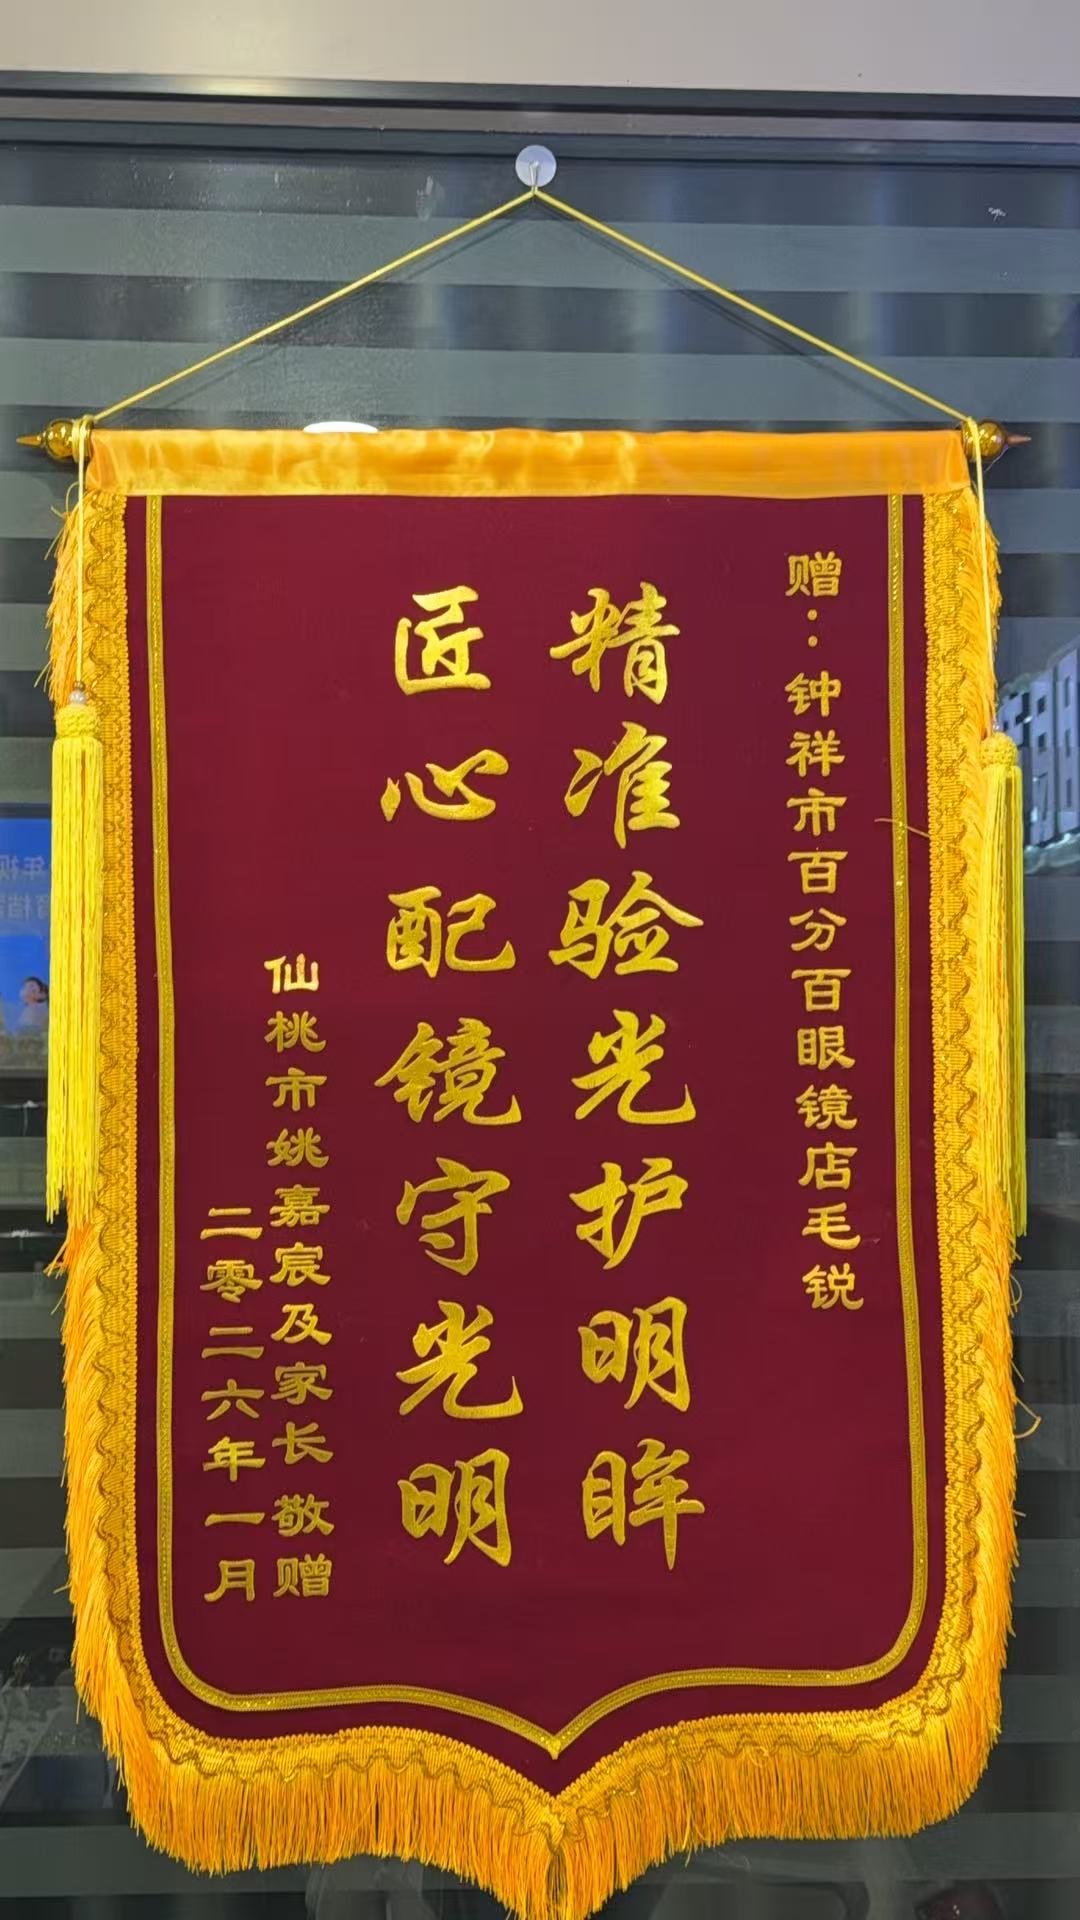 赠：钟祥市百分百眼镜店毛锐
精准验光护明眸
匠心配镜守光明
仙桃市姚嘉宸及家长 敬赠
二零二六年一月